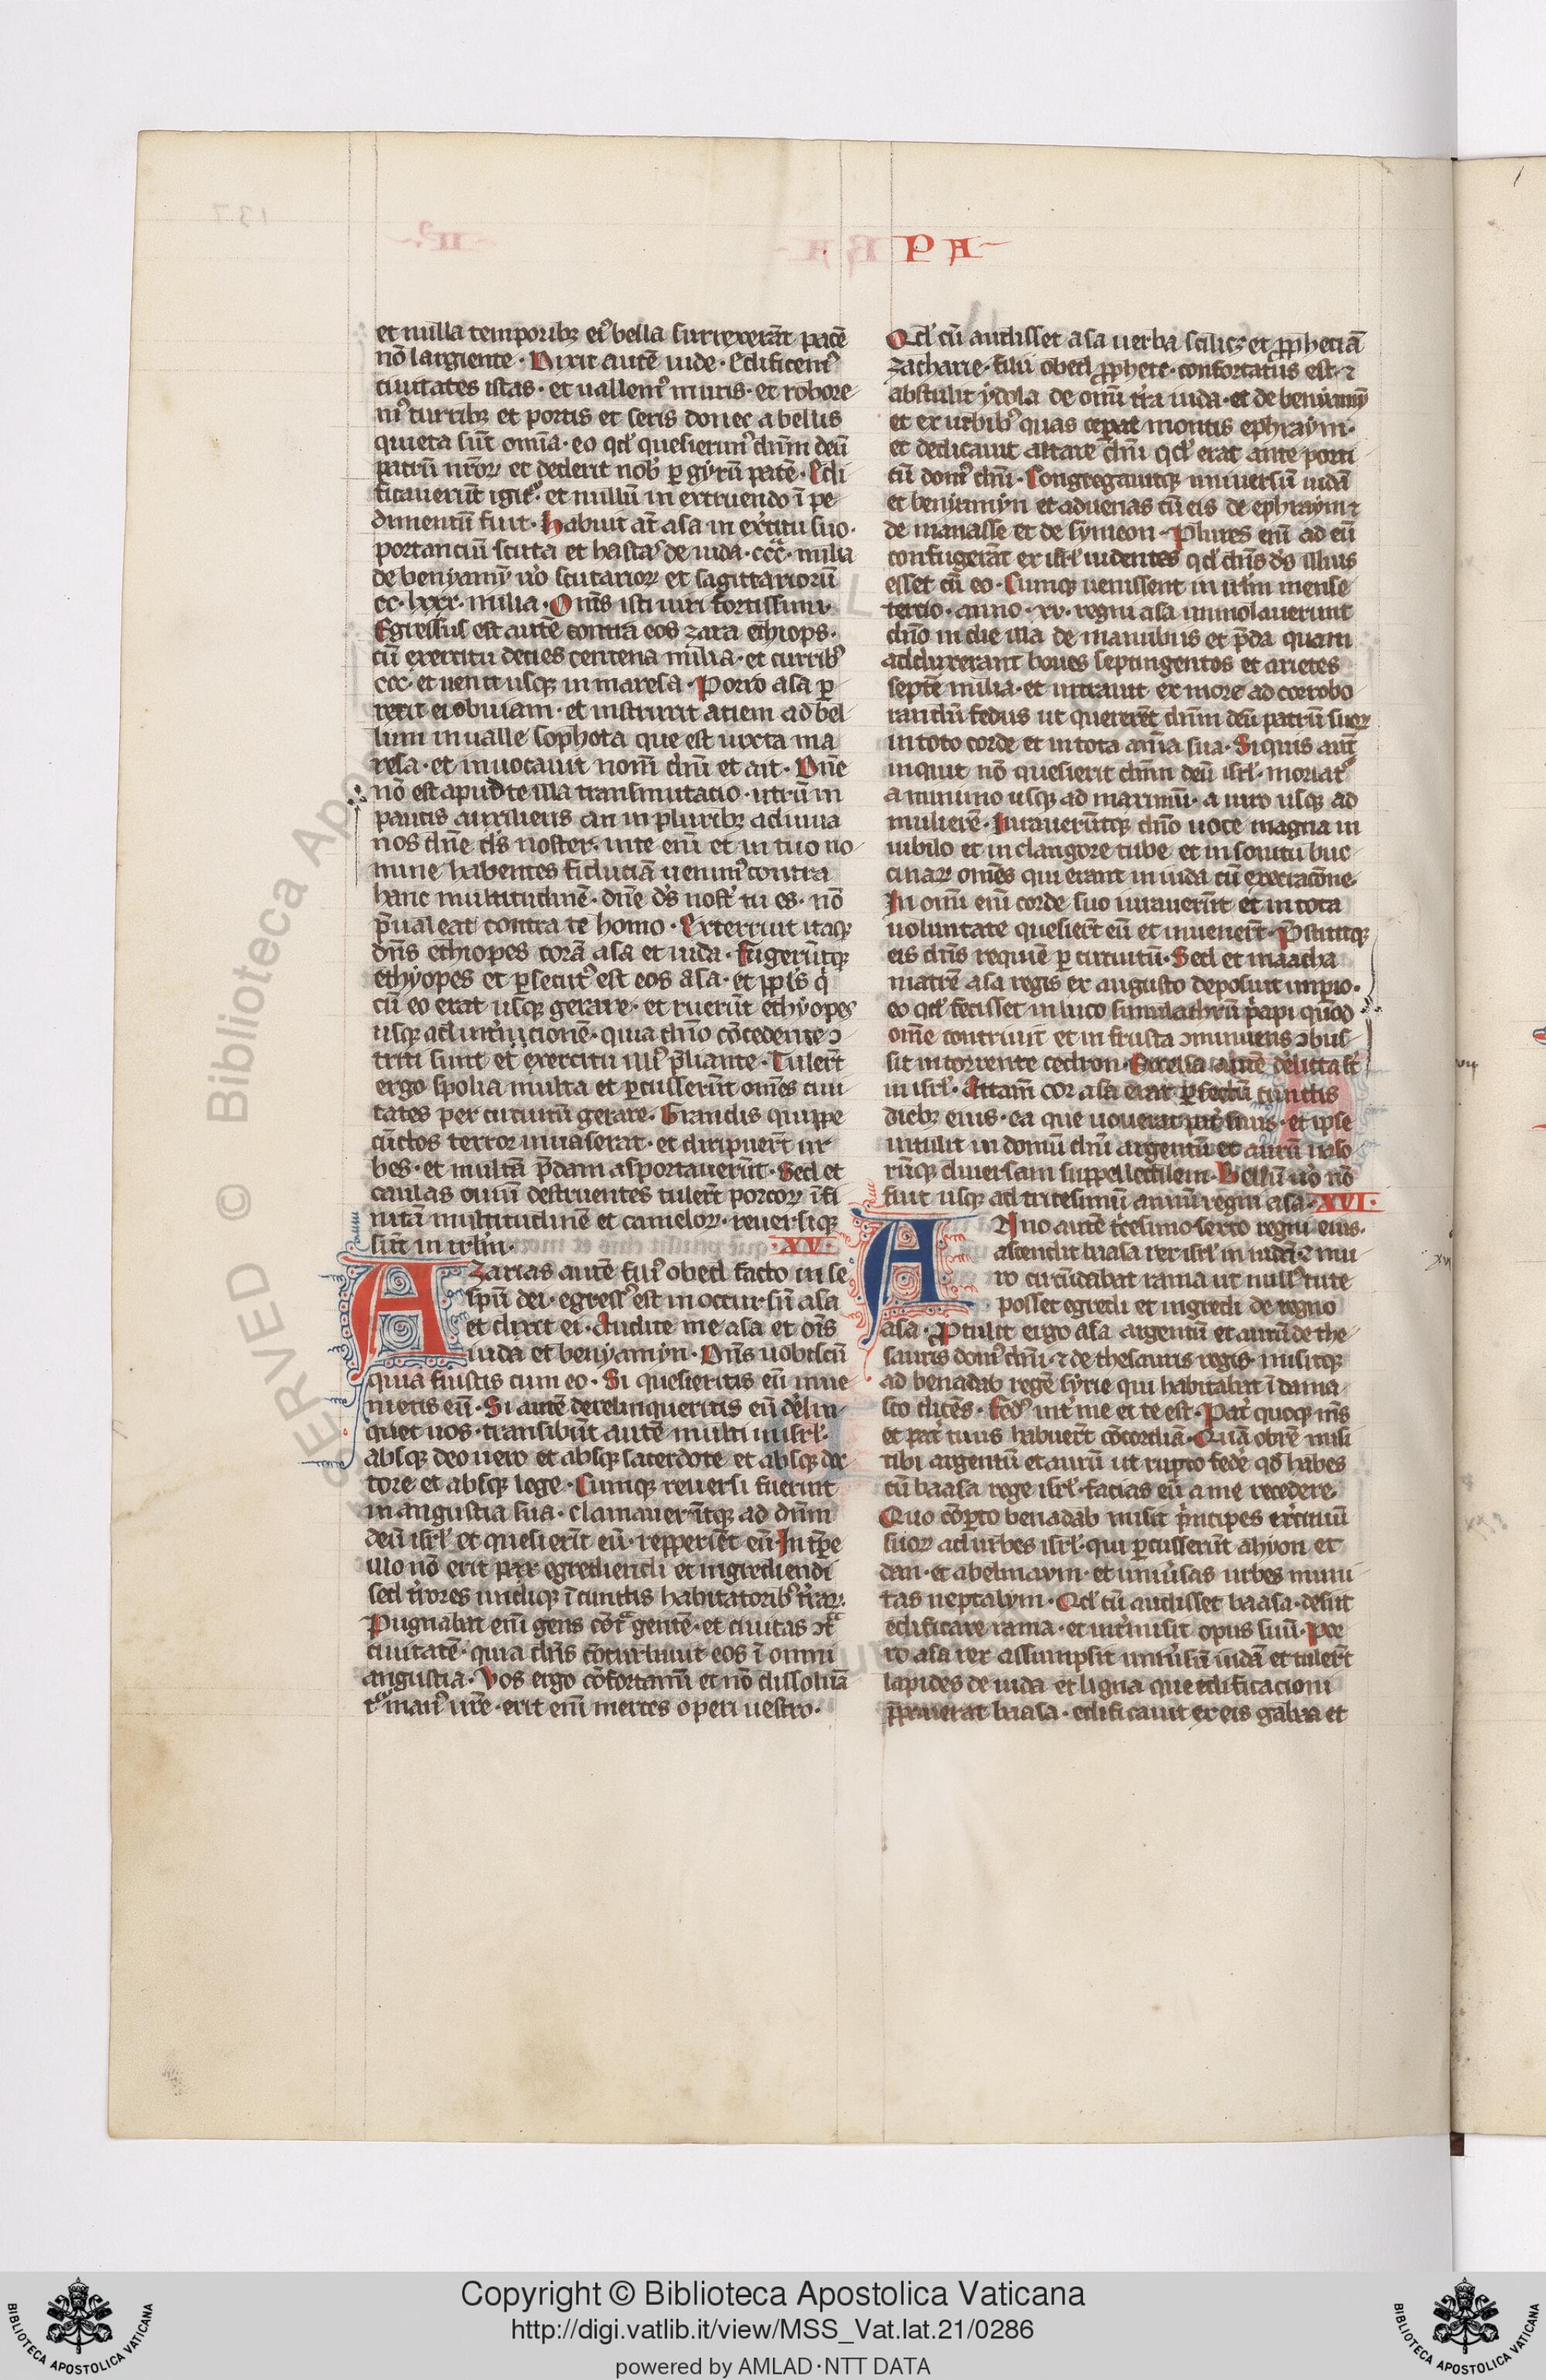 PA
et nulla temporibꝫ eiꝰ bella surrexerāt pacē
nō largiente · Dixit autē iude · Edificemꝰ
ciuitates istas · et uallemꝰ muris · et robore
mꝰ turribꝫ et portis et seris donec a bellis
quieta sūt omīa · eo qd' quesierimꝰ dn̄m deū
patrū nr̄oꝝ et dederit nob' ꝑ gyrū pacē · Edi
ficauerūt igit᷑ · et nullū in extruendo ī pe
dimentū fuit · Habuit at̄ asa in ex̄citu suo ·
portanciū scuta et hastas de iuda · ccc · milia
de benyamȳ u'o scutarioꝝ et sagittarioꝝū
cc · lxxx · milia · Om̄s isti uiri fortissimi ·
Egressus est autē contra eos zara ethiops ·
cū exercitu decies centena milia · et curribꝰ
ccc · et uenit usqꝫ in maresa · Porro asa ꝑ
rexit ei obuiam · et instruxit aciem ad bel
lum in ualle sophota que est iuxta ma
resa · et inuocauit nom̄ dn̄i et ait · Dn̄e
nō est apud te ulla transmutacio · utrū in
paucis auxilieris an in pluribꝫ adiuua
nos dn̄e ds̄ noster · in te eni᷑ et in tuo no
mine habentes fiduciā uenimꝰ contra
hanc multitudinē · dn̄e ds̄ nost' tu es · nō
p̄ualeat contra te homo · Exterruit itaqꝫ
dn̄s ethiopes corā asa et iuda · fugerūtqꝫ
ethyopes et ꝑsecutꝰ est eos asa · et ppl's q'
cū eo erat usqꝫ gerare · et ruerūt ethyopes
usqꝫ ad int'nicionē · quia dn̄o cōcedente ↄ
triti sunt et exercitu illiꝰ p̄liante · Tuler̄t
ergo spolia multa et ꝑcusserūt om̄es ciui
tates per circuitū gerare · Grandis quippe
cūctos terror inuaserat · et diripuer̄t ur
bes · et multā p̄dam asportauerūt · Sed et
caulas ouiū destruentes tuler̄t pecoꝝ īfi
nitā multitudinē et cameloꝝ · reuersiqꝫ
sūt in irl̄m · XV ·
Azarias autē filiꝰ obed facto in se
spū dei · egressꝰ est in occursū asa
et dixit ei · Audite me asa et ois̄
iuda et benyamyn · Dn̄s uobiscū
quia fuistis cum eo · Si quesieritis eū inue
nietis eū · Si autē derelinqueritis eū d'elin
quet uos · transibūt autē multi in isrl' ·
absqꝫ deo uero et absqꝫ sacerdote et absqꝫ doc
tore et absqꝫ lege · Cumqꝫ reuersi fuerint
in angustia sua · clamauerītqꝫ ad dn̄m
deū isrl' et quesierīt eū · repperiēt eū · In tp̄e
illo nō erit pax egrediendi et ingrediendi
sed t'rores undiqꝫ ī cunctis habitatoribꝰ t'raꝝ ·
Pugnabit eni᷑ gens cōt͛ gentē · et ciuitas ↄt͛
ciuitatē · quia dn̄s cōturbauit eos ī omni
angustia · Vos ergo cōfortami᷑ et nō dissoluā
t᷑ manꝰ ur̄e · erit eni᷑ merces operi uestro ·
Qd' cū audisset asa uerba scilicꝫ et ꝓphetiā
zacharie · filii obed ꝓphete · confortatus est · ⁊
abstulit ydola de omi᷑ t'ra iuda · et de benyamȳ
et ex urbibꝰ quas ceperat montis ephraym ·
et dedicauit altare dn̄i qd' erat ante porti
cū domꝰ dn̄i · Congregauitqꝫ uniuersū iudā
et benyamyn et aduenas cū eis de ephraym ⁊
de manasse et de symeon · Plures eni᷑ ad eū
confugerāt ex isrl' uidentes qd' dn̄s ds̄ illius
esset cū eo · Cumqꝫ uenissent in irl̄m mense
tercio · anno · xv · regni asa immolauerunt
dn̄o in die illa de manubiis et p̄da quam
adduxerant boues septingentos et arietes
septē milia · et intrauit ex more ad corrobo
randū fedus ut quererēt dn̄m deū patrū suoꝝ
in toto corde et in tota aīa sua · Siquis aut̄
inquit nō quesierit dn̄m deū isrl' · moriat᷑
a minimo usqꝫ ad maximū · a uiro usqꝫ ad
mulierē · Iurauerūtqꝫ dn̄o uoce magna in
iubilo et in clangore tube et in sonitu buc
cinaꝝ om̄es qui erant in iuda cū execracōne ·
In omi᷑ eni᷑ corde suo iurauerūt et in tota
uoluntate quesier̄t eū et inuener̄t · P̄stititqꝫ
eis dn̄s requiē ꝑ circuitū · Sed et maacha
matrē asa regis ex augusto deposuit imꝑio ·
eo qd' fecisset in luco simulachrū p'api qn̄od
om̄e contriuit et in frusta ↄminuens ↄbus
sit in torrente cedron · Excelsa autē d'elicta st̄
in isrl' · Attam̄ cor asa erat ꝑfectū cunctis
diebꝫ eius · ea que uouerat pat' suus · et ipse
intulit in domū dn̄i argentū et aurū uaso
rūqꝫ diuersam suppellectilem · Bellū u'o nō
fuit usqꝫ ad tricesimū annū regni asa · XVI ·
Anno autē t'cesimo sexto regni eius ·
ascendit baasa rex isrl' in iudā · ⁊ mu
ro circūdabat rama ut nullꝰ tute
posset egredi et ingredi de regno
asa · Ptulit ergo asa argentū et aurū de the
sauris domꝰ dn̄i · ⁊ de thesauris regis · misitqꝫ
ad benadab regē syrie qui habitabat ī dama
sco dicēs · fedꝰ int' me et te est · Pat' quoqꝫ mꝰs
et pat' tuus habuer̄t cōcordiā · Quā obrē misi
tibi argentū et aurū ut rupto fede' qd' habes
cū baasa rege isrl' · facias eū a me recedere ·
Quo cōꝑto benadab misit p'ncipes ex̄cituū
suoꝝ ad urbes isrl' · qui ꝑcusserūt ahyon et
dan · et abelmaym · et uniu'sas urbes muni
tas neptalym · Qd' cū audisset baasa · desiit
edificare rama · et int'misit opus suū · Por
ro asa rex assumpsit uniu'sū iudā et tuler̄t
lapides de iuda et ligna que edificacioni
p̄ꝑauerat baasa · edificauit ex eis gabaa et
© Biblioteca Apo
ERVED
Copyright © Biblioteca Apostolica Vaticana
http://digi.vatlib.it/view/MSS_Vat.lat.21/0286
powered by AMLAD · NTT DATA
BIBLIOTECA APOSTOLICA VATICANA
BIBLIOTECA APOSTOLICA VATICANA